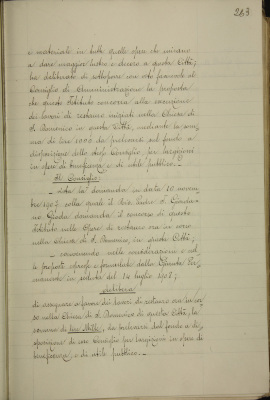 283
e materiale in tutte quelle opere che mirano
a dare maggior lustro e decoro a questa Città;
ha deliberato di sottoporre con voto favorevole al
Consiglio di Amministrazione la proposta
che questo Istituto concorra alla
dei lavori di restauro iniziati nella Chiesa di
S. Domenico in questa Città, mediante la som-
ma di lire 1000 da prelevarsi sul fondo a
disposizione dello stesso Consiglio per elargizioni
in opere di beneficenza e di utile pubblico.
Il Consiglio
vista la domanda in data 20 novem-
bre 1907 colla quale il
no domanda il concorso di questo
Istituto nelle opere di restauro ora in corso
nella Chiesa di S. Domenico, in questa Città;
convenendo nelle considerazioni e nel-
le proposte espresse e formulate dalla Giunta Per-
manente in seduta del 14 luglio 1908;
delibera
di assegnare a favore dei lavori di restauro ora in cor-
so nella Chiesa di S. Domenico di questa Città, la
somma di lire Mille, da prelevarsi dal fondo a di-
sposizione di esso Consiglio per elargizioni in opere di
beneficenza e di utile pubblico.